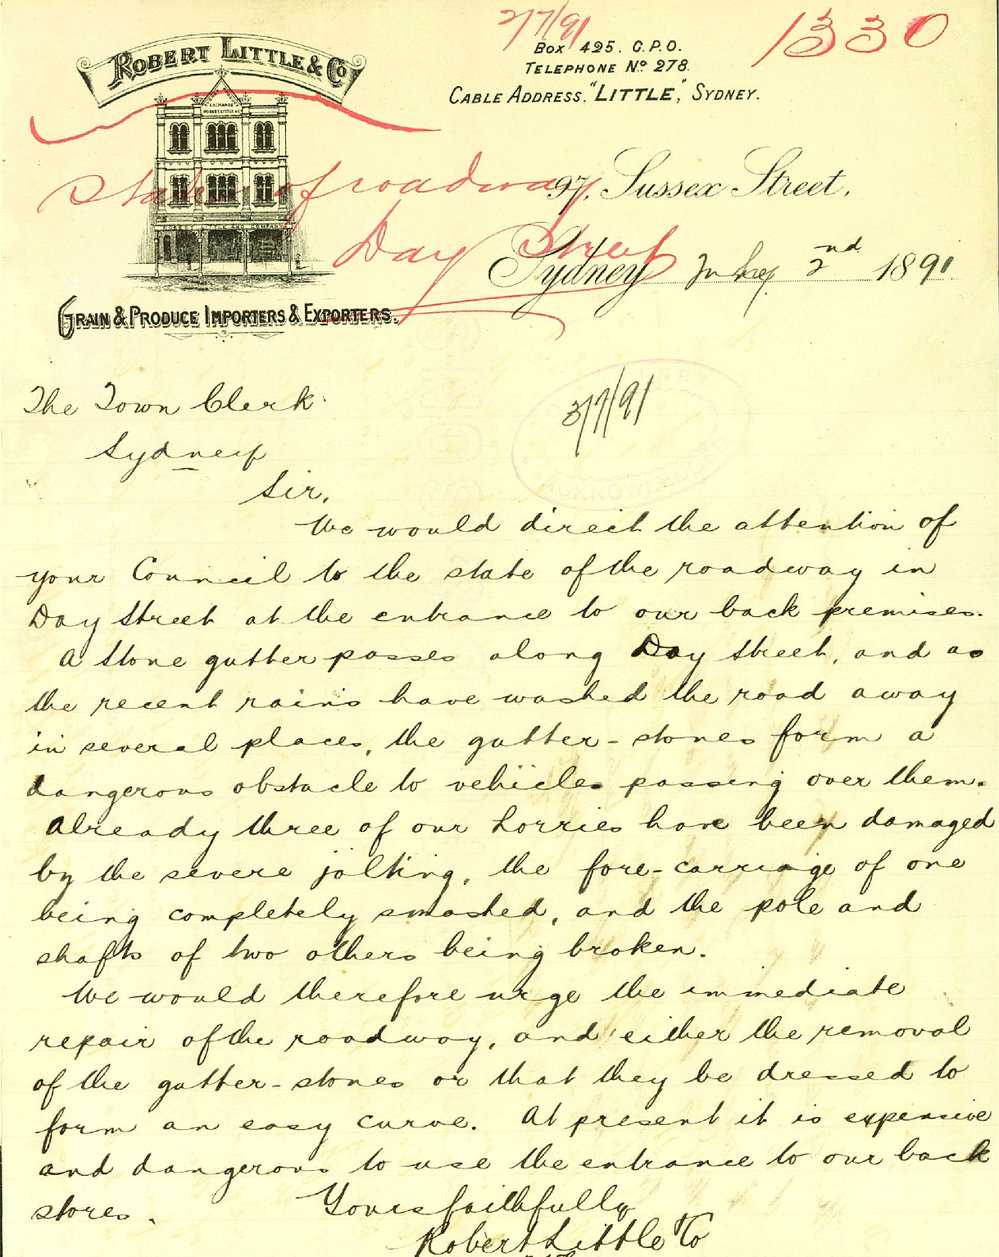 2/7/91
1330
ROBERT LITTLE & Co
BOX 425. G.P.O.
TELEPHONE No 278.
CABLE ADDRESS, "LITTLE", SYDNEY.
State of roadway
Day Street
97, Sussex Street,
Sydney July 2nd 1891
GRAIN & PRODUCE IMPORTERS & EXPORTERS.
The Town Clerk
Sydney
3/7/91
ACKNOWLEDGED
Sir,
We would direct the attention of
your Council to the state of the roadway in
Day Street at the entrance to our back premises.
A stone gutter passes along Day Street, and as
the recent rains have washed the road away
in several places, the gutter-stones form a
dangerous obstacle to vehicles passing over them.
Already three of our lorries have been damaged
by the severe jolting, the fore-carriage of one
being completely smashed, and the pole and
shafts of two others being broken.
We would therefore urge the immediate
repair of the roadway, and either the removal
of the gutter-stones or that they be dressed to
form an easy curve. At present it is expensive
and dangerous to use the entrance to our back
stores.
Yours faithfully
Robert Little & Co